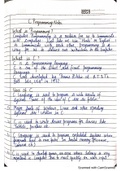 C Programming Notes
What is Programming?
Computer Programming is a medium for us to communicate
with computers. Just like we use 'Hindi' or 'English' to
communicate with each other, Programming is a
way for us to deliver our instructions to the computer.
What is C?
C is a Programming Language.
C is one of the oldest and finest Programming
languages.
C was developed by Dennis Ritchie at AT&T's
Uses of C
C language is used to program a wide variety of
systems. Some of the uses of C are as follows:
Major parts of Windows, Linux and other operating
systems are written in C
C is used to write driver programs for devices like
Tablets, printers etc.
C language is used to program embedded systems where
programs need to run faster in limited memory
C is used to develop games, an area where latency is very
important i.e. Computer has to react quickly on user input